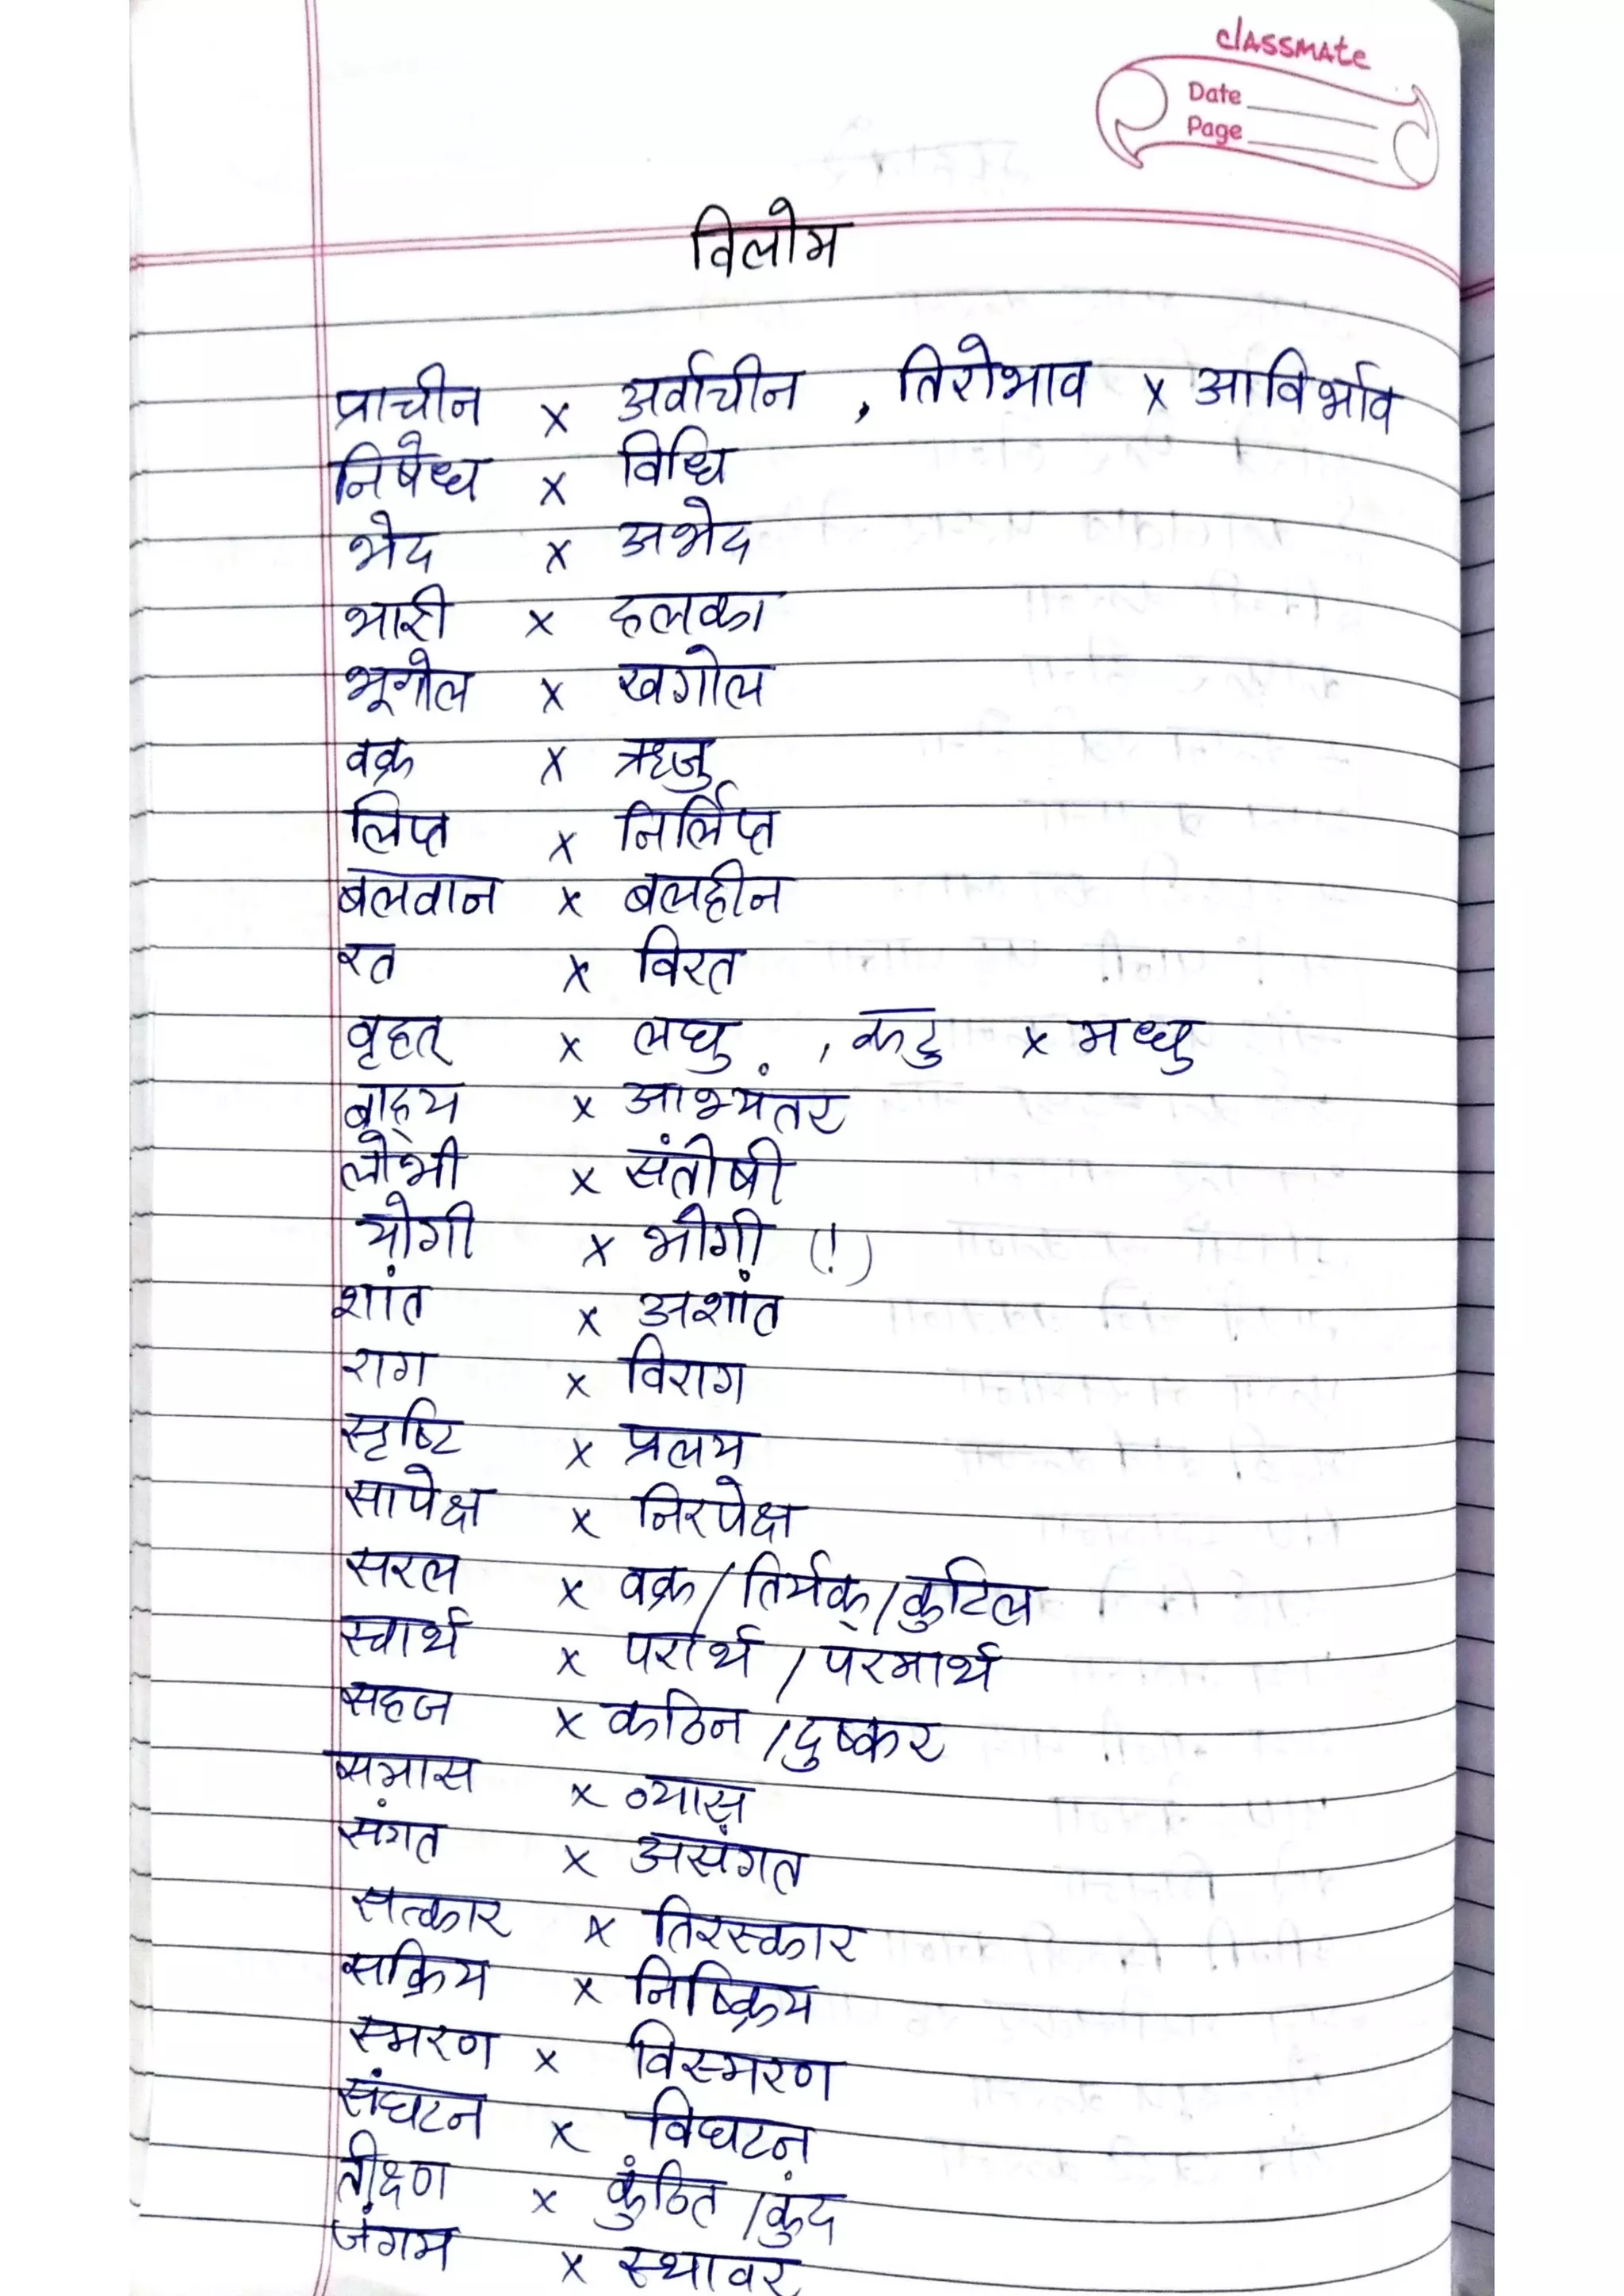 classmate
Date
Page
विलोम
प्राचीन x अर्वाचीन , तिरोभाव x आविर्भाव
निषेध x विधि
भेद x अभेद
भारी x हलका
भूगोल x खगोल
वक्र x ऋजु
लिप्त x निर्लिप्त
बलवान x बलहीन
रत x विरत
वृहत् x लघु , कटु x मधु
बाह्य x आभ्यंतर
लोभी x संतोषी
योगी x भोगी (!)
शांत x अशांत
राग x विराग
सृष्टि x प्रलय
सापेक्ष x निरपेक्ष
सरल x वक्र / तिर्यक् / कुटिल
स्वार्थ x परार्थ / परमार्थ
सहज x कठिन / दुष्कर
समास x व्यास
संगत x असंगत
सत्कार x तिरस्कार
सक्रिय x निष्क्रिय
स्मरण x विस्मरण
संघटन x विघटन
तीक्ष्ण x कुंठित / कुंद
जंगम x स्थावर